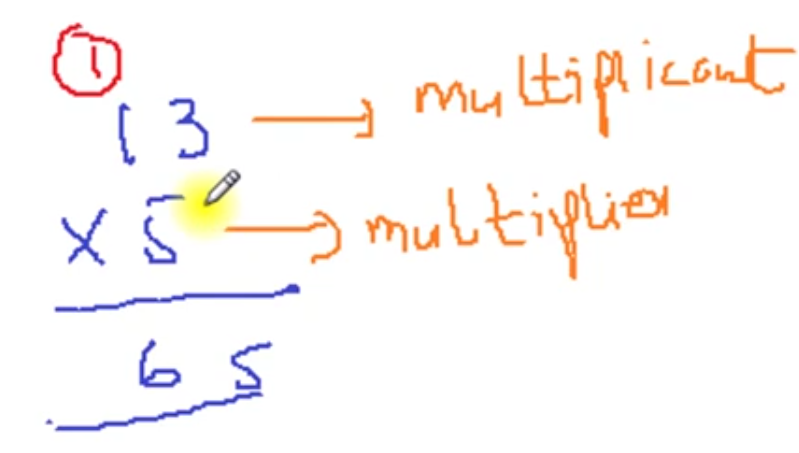 1
13 → multiplicant
× 5 → multiplier
65